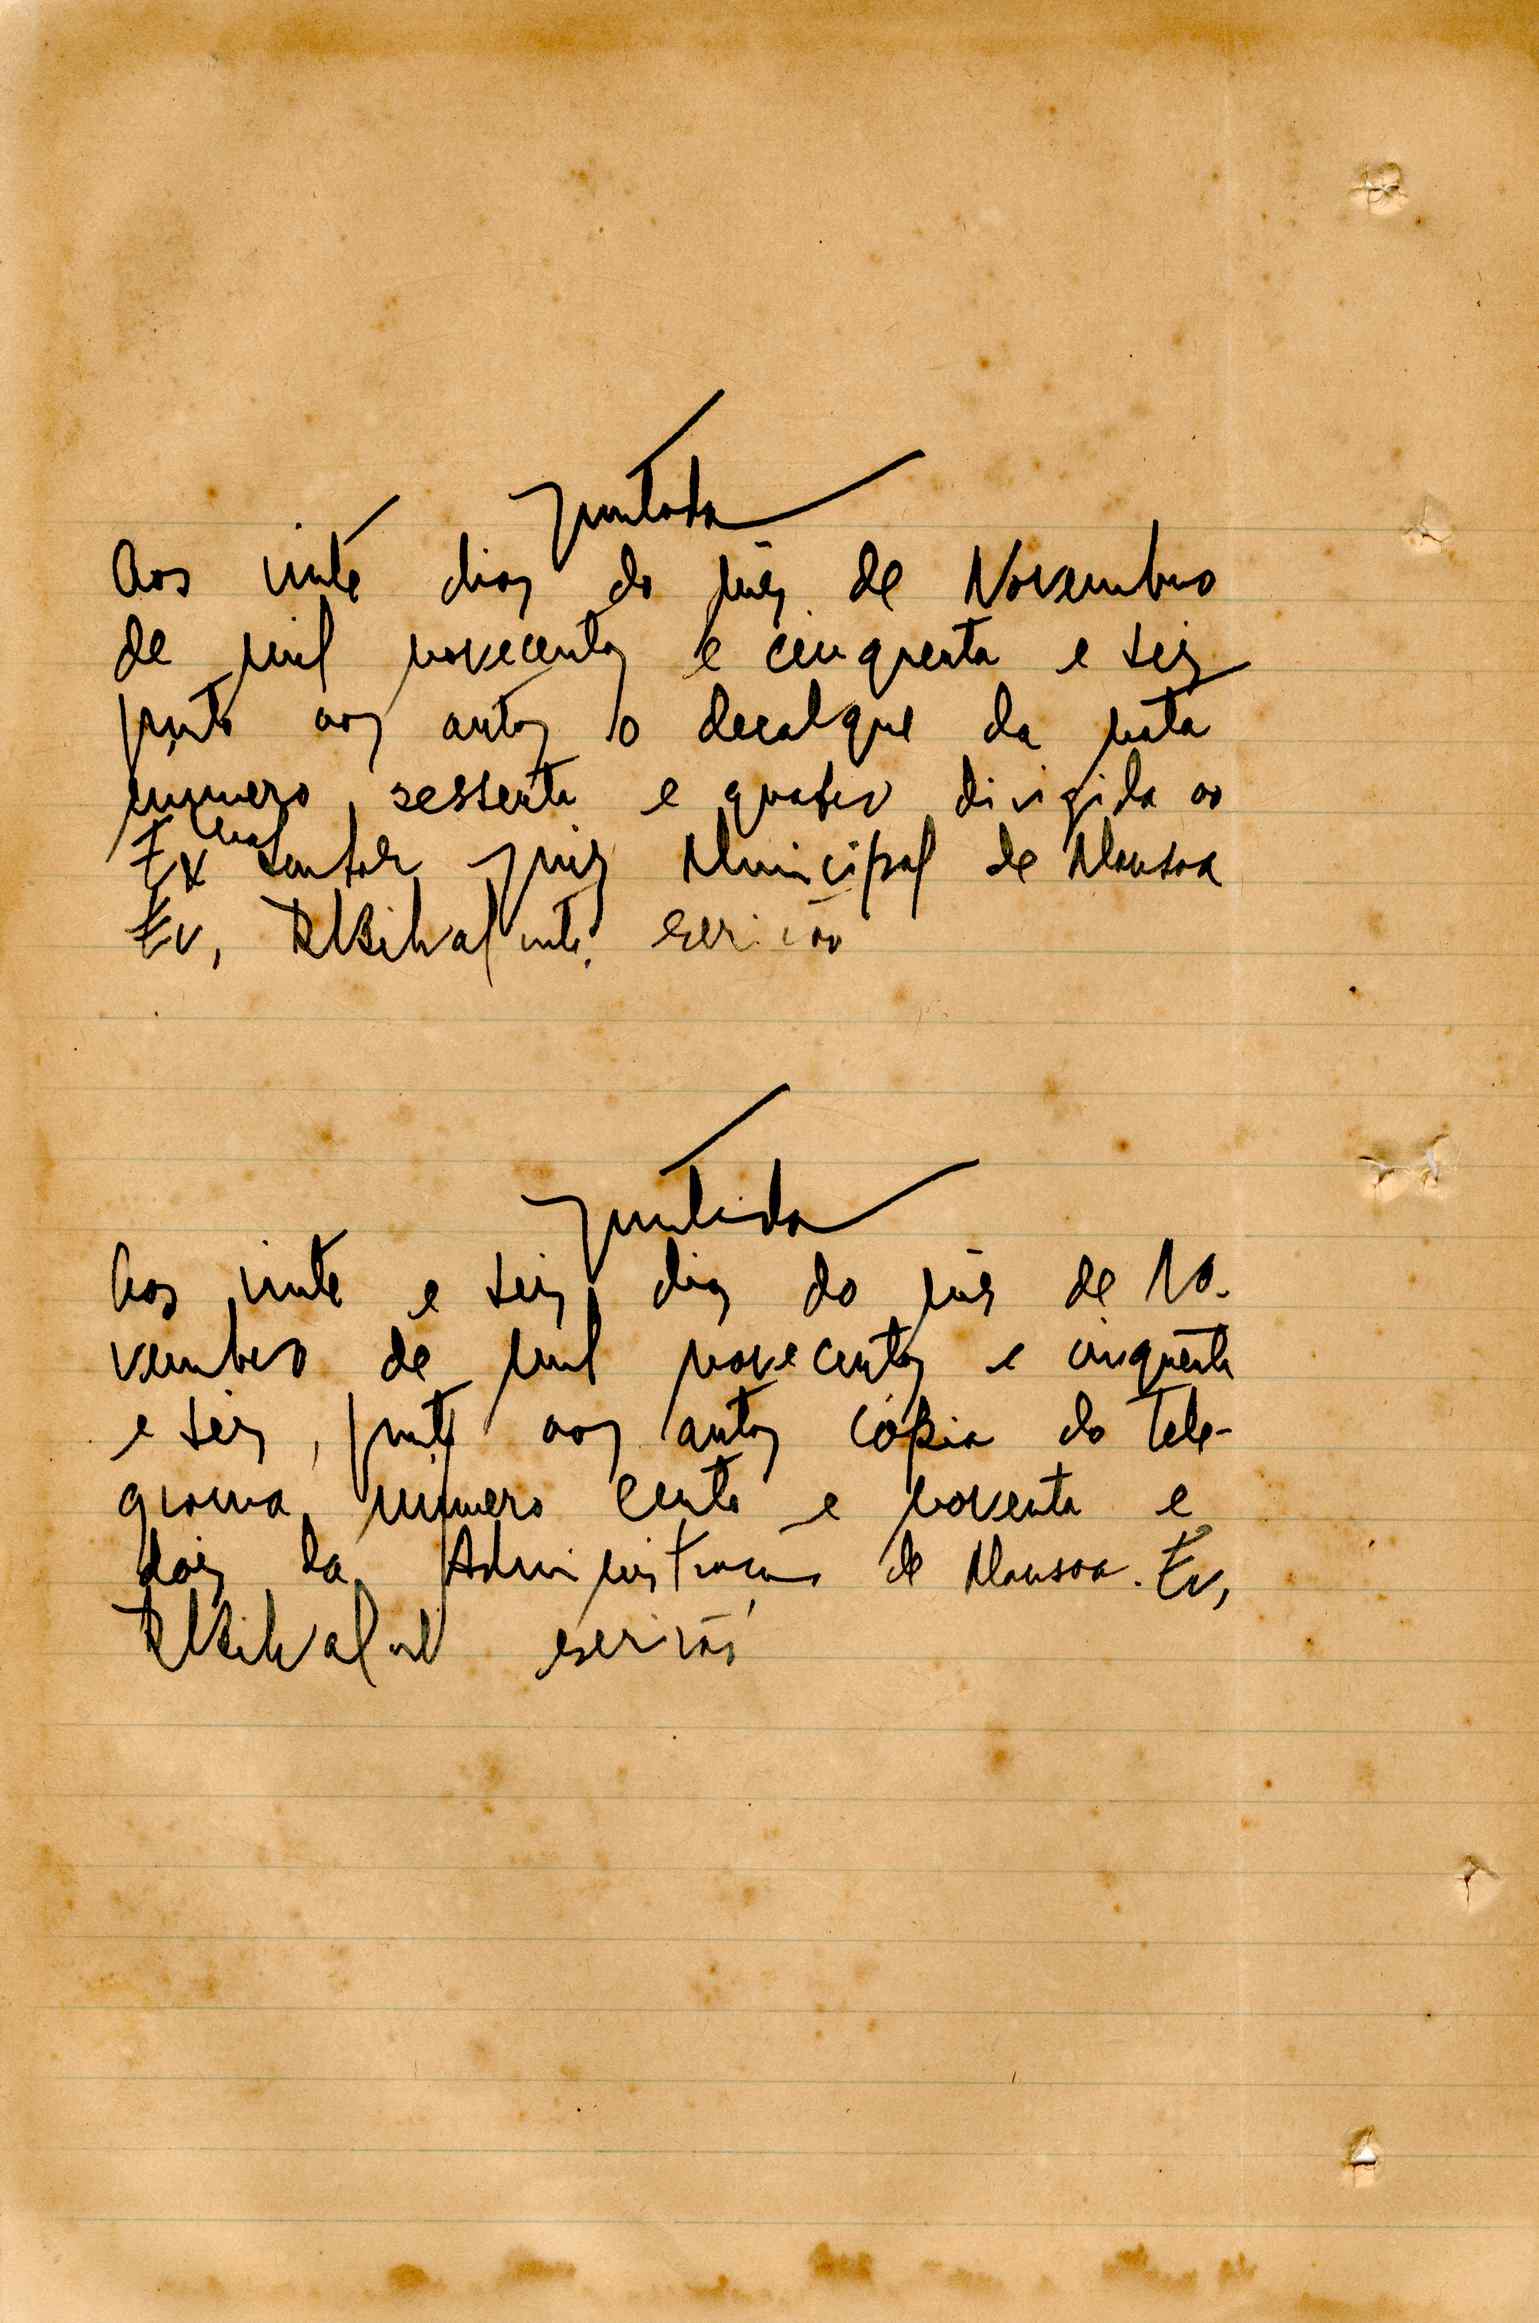 Juntada
Aos vinte dias do mês de Novembro
de mil novecentos e cinquenta e seis
junto aos autos o decalque da nota
número sessenta e quatro dirigida ao
Exmo Senhor Juiz Municipal de Mansoa
Eu, escrivão
Juntada
Aos vinte e seis dias do mês de No-
vembro de mil novecentos e cinquenta
e seis, junto aos autos cópia do tele-
grama número cento e noventa e
dois da Administração de Mansoa. Eu,
escrivão